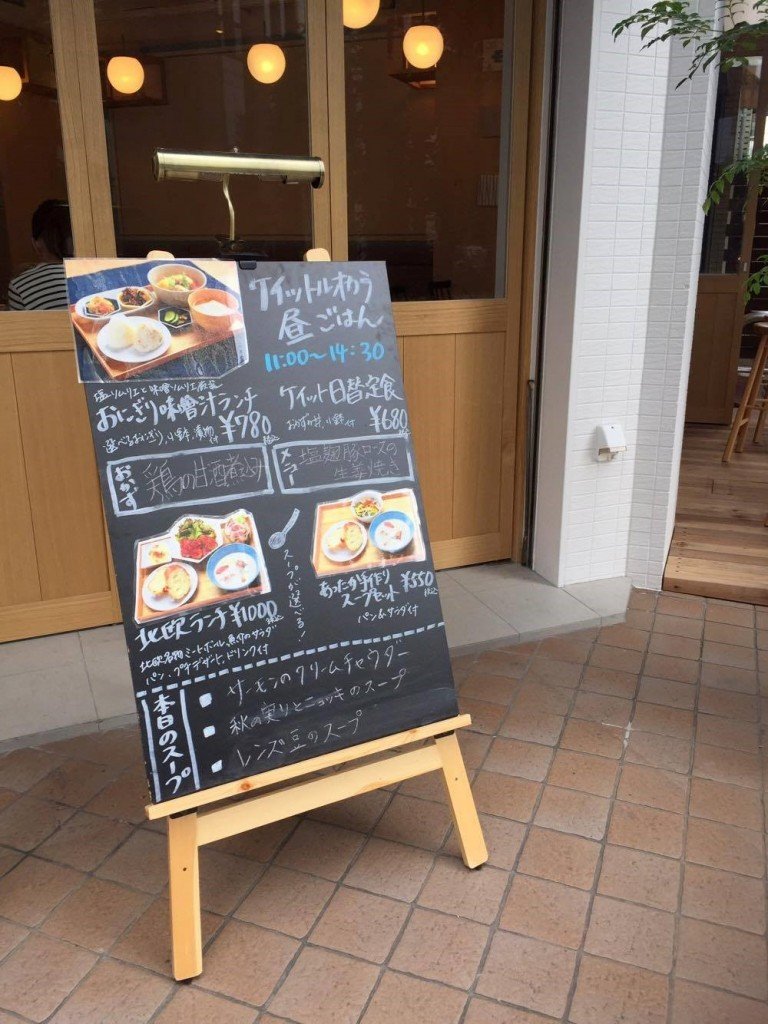 ケイットルオカラ
昼ごはん
11:00〜14:30
塩ソムリエと味噌ソムリエ厳選
おにぎり味噌汁ランチ
¥780
税込
選べるおにぎり、小鉢、漬物付
おかず
鶏の甘酒煮込み
ケイット日替定食
¥680
おかず丼、小鉢付
メニュー
塩麹豚ロースの
生姜焼き
北欧ランチ¥1000
税込
北欧名物ミートボール、魚介のサラダ
パン、プチデザート、ドリンク付
スープが選べる!
あったか手作り
スープセット ¥550
税込
パン&サラダ付
本日のスープ
サーモンのクリームチャウダー
秋の実りとニョッキのスープ
レンズ豆のスープ